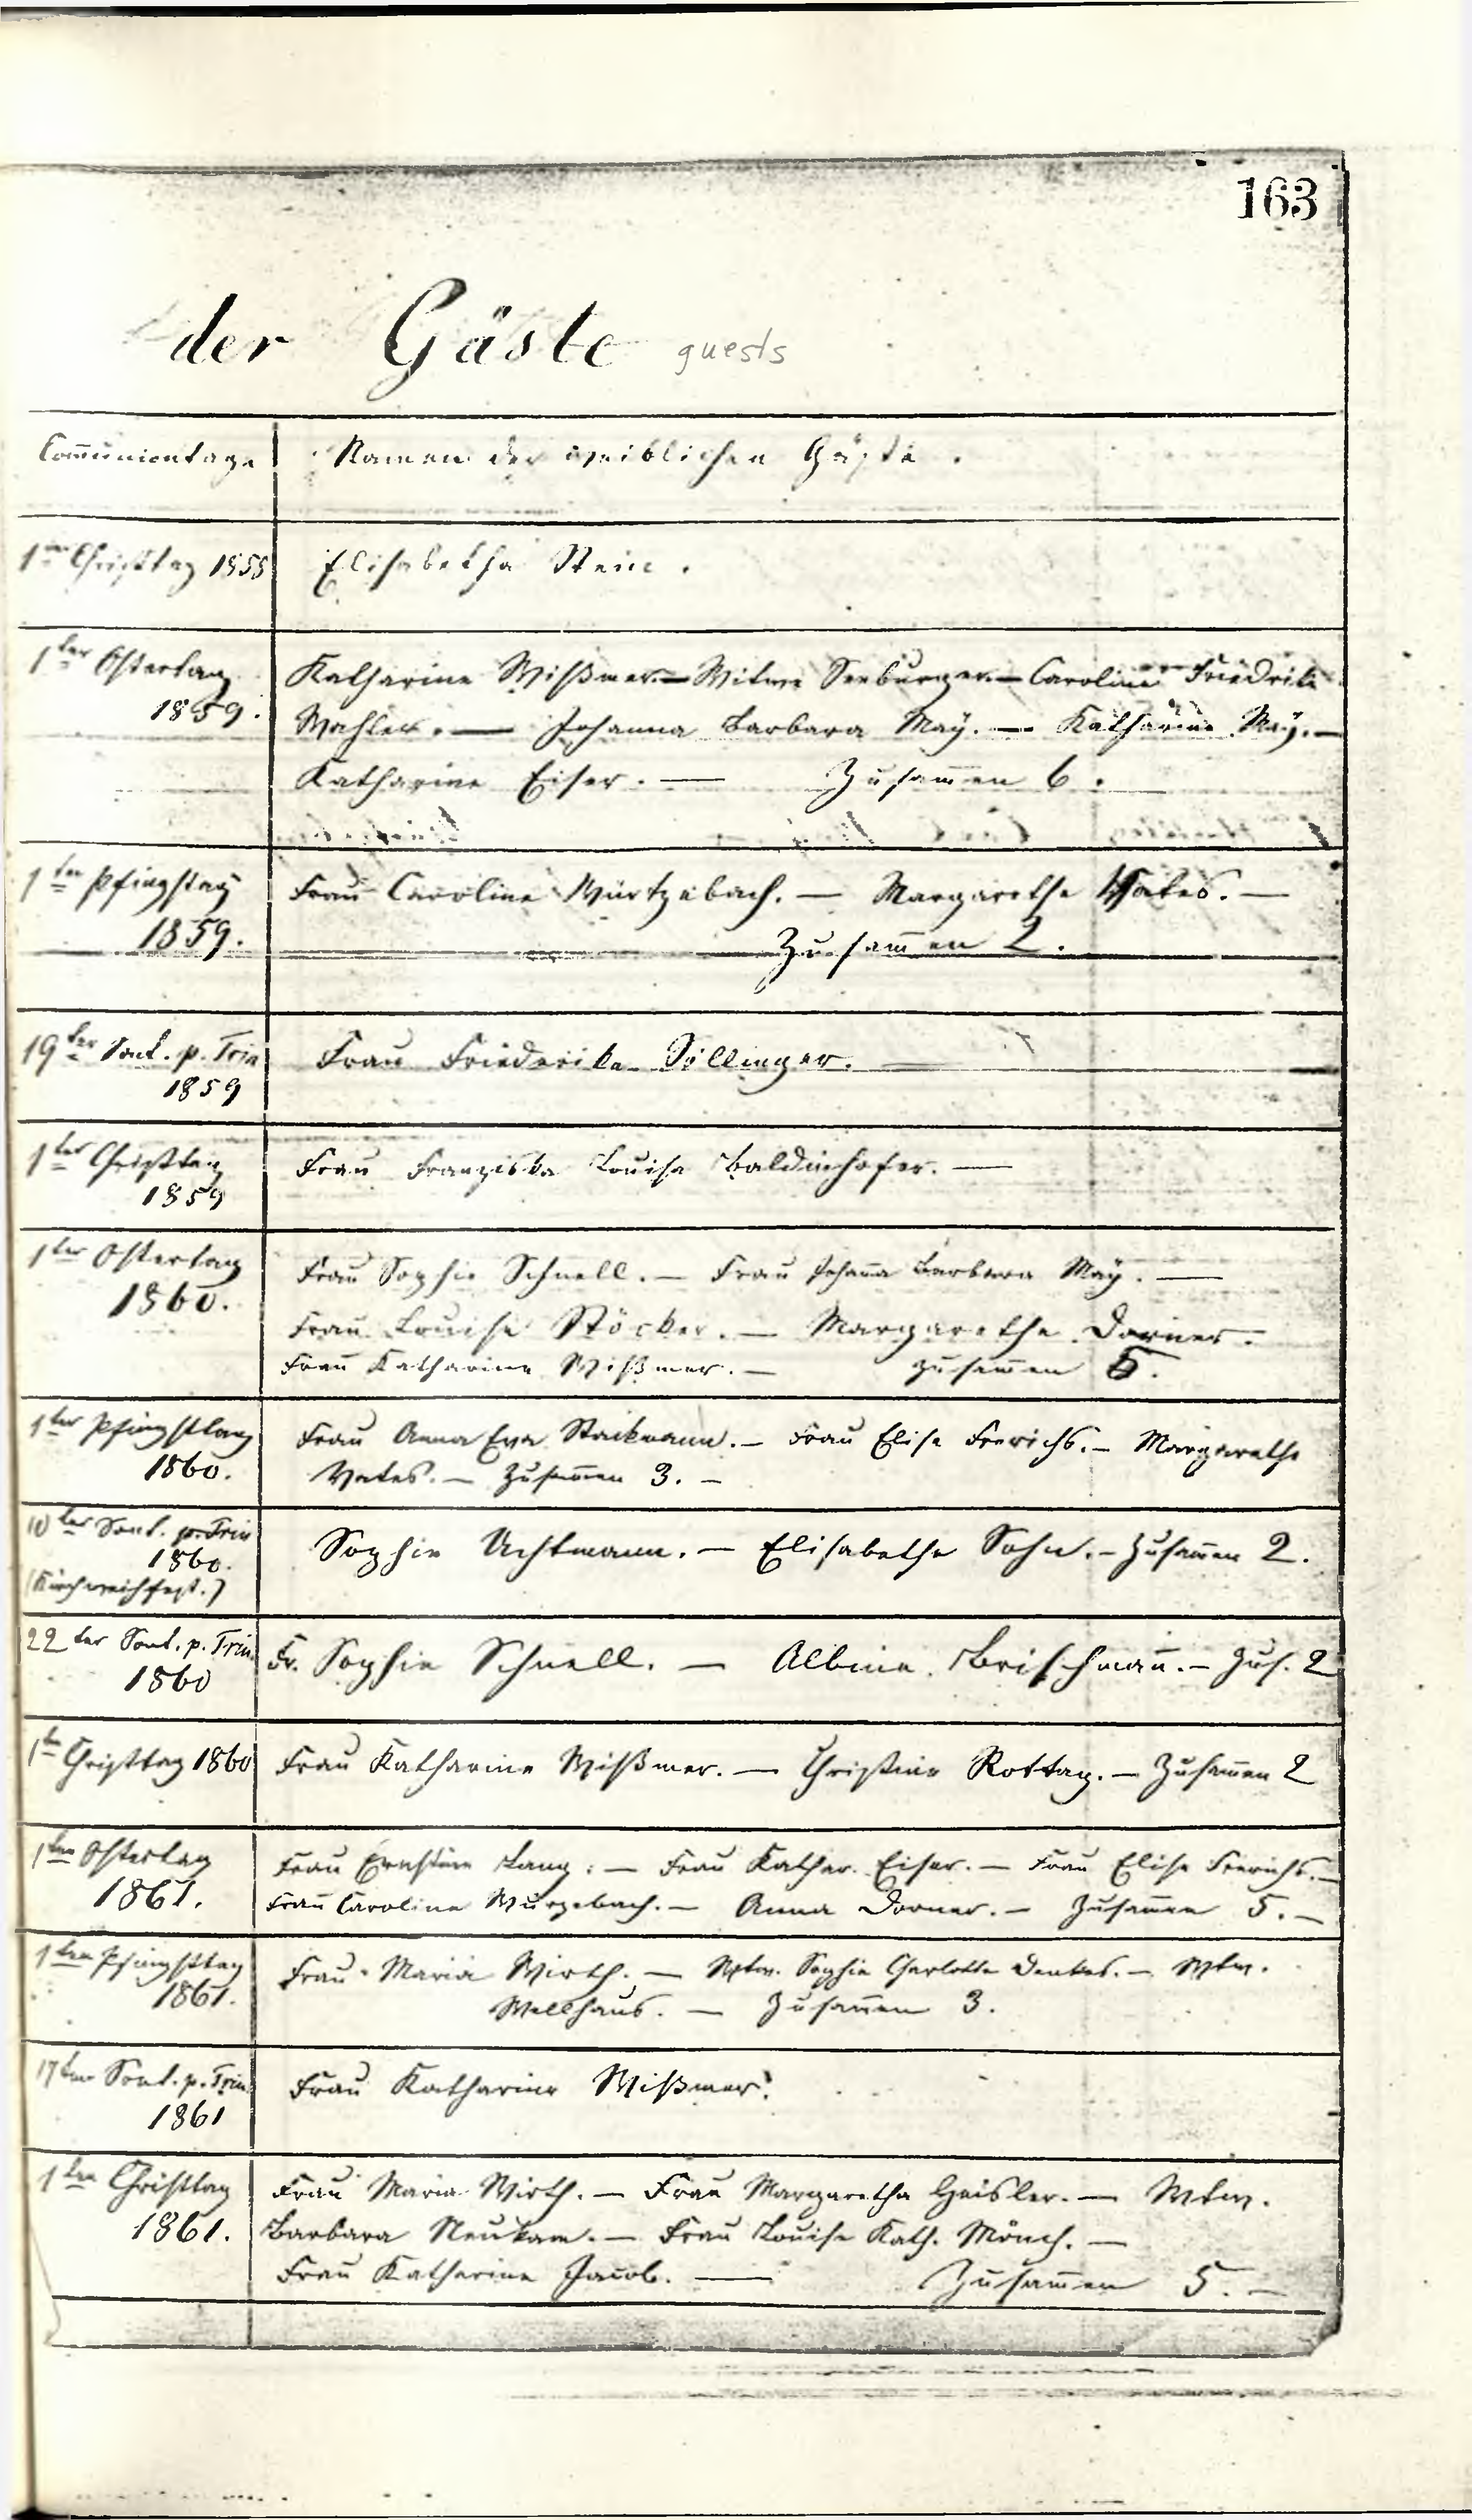 163
der Gäste guests
Communiontage
Namen der weiblichen Gäste.
1ter Christtag 1858
Elisabetha Stein.
1ter Ostertag
1859.
Katharine Wißmer. — Witwe Seeburger. — Caroline Friedrike
Wahler. — Johanna Barbara May. — Katharine May. —
Katharine Eiser. — Zusam̅en 6.
1ter Pfingstag
1859.
Frau Caroline Würtzebach. — Margarethe Vates. —
Zusam̅en 2.
19ter Sont. p. Trin
1859
Frau Friederike Söllinger. —
1ter Christtag
1859
Frau Franziska Louise Baldinhofer. —
1ter Ostertag
1860.
Frau Sophie Schnell. — Frau Joham̅a Barbara May. —
Frau Louise Stöcker. — Margarethe Dorner. —
Frau Katharine Wißmer. — Zusam̅en 5.
1ter Pfingsttag
1860.
Frau Anna Eva Stackmann. — Frau Elise Frerichs. — Margarethe
Vates. — Zusam̅en 3. —
10ter Sont. p. Trin
1860.
(Kirchweihfest.)
Sophie Uchtmann. — Elisabethe Sohn. — Zusam̅en 2.
22ter Sont. p. Trin.
1860
Fr. Sophie Schnell. — Albine Brischman̅. — Zus. 2
1ter Christtag 1860
Frau Katharine Wißmer. — Christine Rottag. — Zusam̅en 2
1ten Ostertag
1861.
Frau Ernstine Lang. — Frau Kathar. Eiser. — Frau Elise Frerichs. —
Frau Caroline Wurzebach. — Anna Dorner. — Zusam̅en 5. —
1ten Pfingsttag
1861.
Frau Maria Wirth. — Wtw. Sophie Charlotte Denkes. — Wtw.
Wellhaus. — Zusam̅en 3.
17ten Sont. p. Trin
1861
Frau Katharine Wißmer.
1ten Christtag
1861.
Frau Maria Wirth. — Frau Margaretha Geisler. — Wtw.
Barbara Neukam. — Frau Louise Kath. Mönch. —
Frau Katharine Jacob. — Zusam̅en 5. —